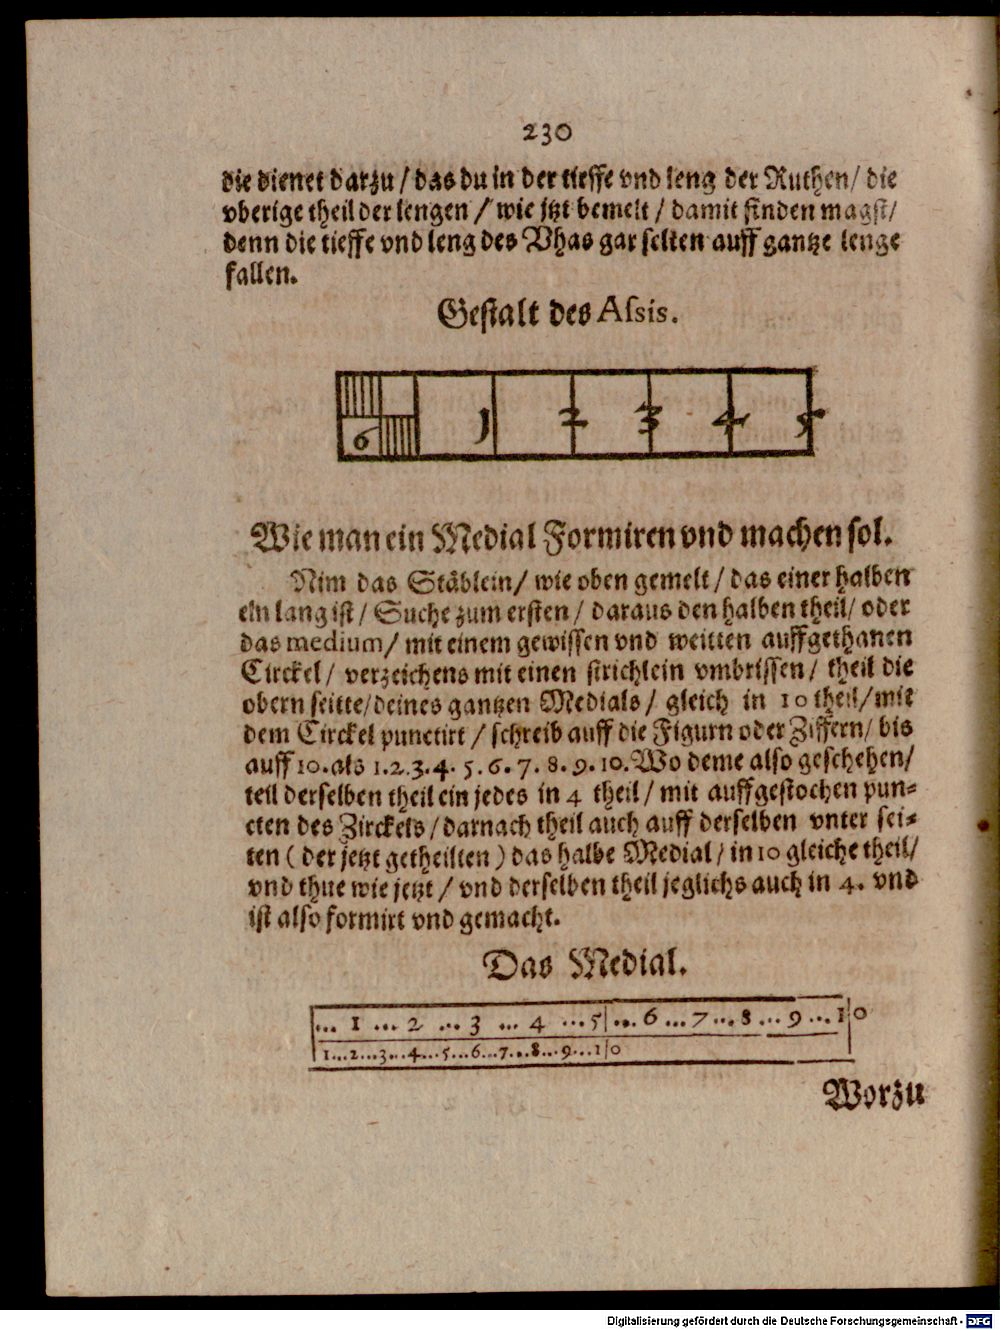 230
die dienet darzu / das du in der tieffe vnd leng der Ruthen / die
vberige theil der lengen / wie jtzt bemelt / damit finden magst /
denn die tieffe vnd leng des Vhas gar selten auff gantze lenge
fallen.
Gestalt des Aſsis.
6 1 2 3 4 5
Wie man ein Medial Formiren vnd machen sol.
Nim das Stäblein / wie oben gemelt / das einer halben
eln lang ist / Suche zum ersten / daraus den halben theil / oder
das medium / mit einem gewissen vnd weitten auffgethanen
Circkel / verzeichens mit einen strichlein vmbrissen / theil die
obern seitte / deines gantzen Medials / gleich in 10 theil / mit
dem Circkel punctirt / schreib auff die Figurn oder Ziffern / bis
auff 10. als 1. 2. 3. 4. 5. 6. 7. 8. 9. 10. Wo deme also geschehen /
teil derselben theil ein jedes in 4 theil / mit auffgestochen pun⸗
cten des Zirckels / darnach theil auch auff derselben vnter sei⸗
ten ( der jetzt getheilten ) das halbe Medial / in 10 gleiche theil /
vnd thue wie jetzt / vnd derselben theil jeglichs auch in 4. vnd
ist also formirt vnd gemacht.
Das Medial.
... 1 ... 2 ... 3 ... 4 ... 5 ... 6 ... 7 ... 8 ... 9 ... 1|0
1...2...3...4...5...6...7...8...9...1|0
Worzu
Digitalisierung gefördert durch die Deutsche Forschungsgemeinschaft - DFG